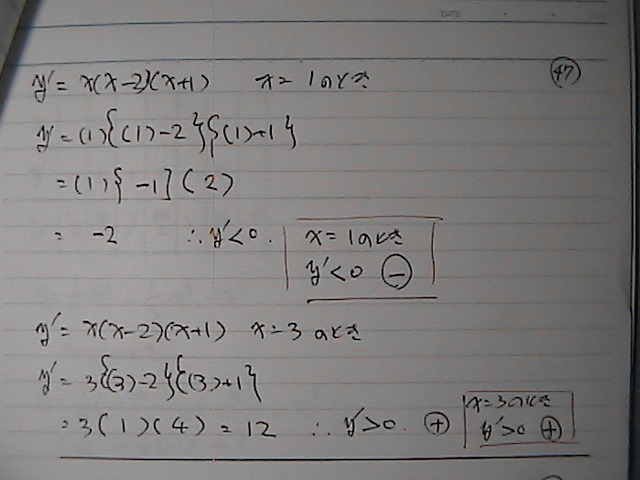 DATE
y' = x(x-2)(x+1) x = 1のとき ㊼
y' = (1){(1)-2}{(1)+1}
= (1){-1](2)
= -2 ∴ y'<0. x = 1のとき
y'<0 ⊖
y' = x(x-2)(x+1) x = 3 のとき
y' = 3{(3)-2}{(3)+1}
= 3(1)(4) = 12 ∴ y'>0. ⊕ x=3のとき
y'>0 ⊕